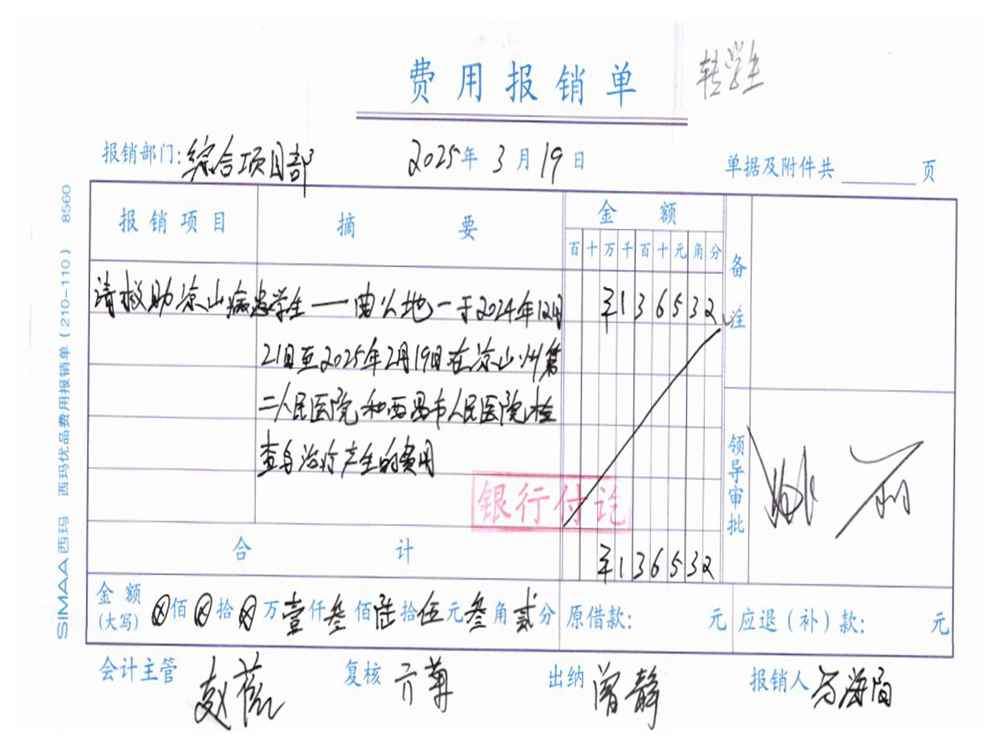 费用报销单
转学生
报销部门:综合项目部 2025年3月19日 单据及附件共 页
SIMAA西玛 西玛优品费用报销单(210-110) 8560
报销项目 摘要 金额 备注
百十万千百十元角分
请救助凉山病患学生——曲么地一于2024年12月 ¥136532
21日至2025年2月19日在凉山州第
二人民医院和西昌市人民医院检
查与治疗产生的费用
银行付讫
领导审批
合计 ¥136532
金额(大写) ⊗佰⊗拾⊗万壹仟叁佰陆拾伍元叁角贰分 原借款: 元 应退(补)款: 元
会计主管 复核 出纳 曾静 报销人